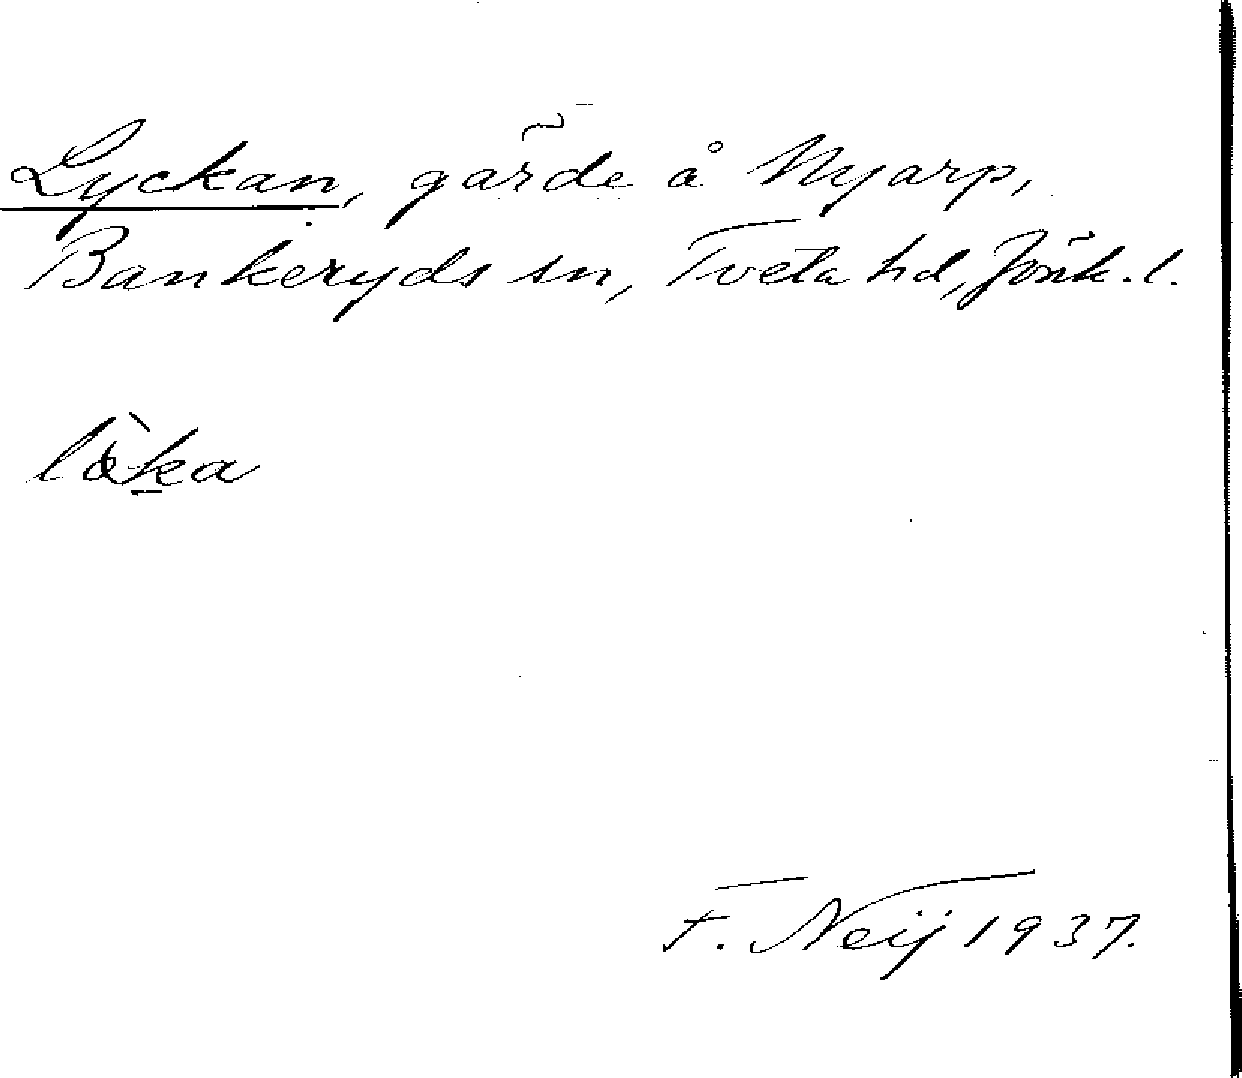 Lyckan, gärde å Nyarp,
Bankeryds sn, Tveta hd, Jönk. l.
lø̀ka
F. Neij 1937.